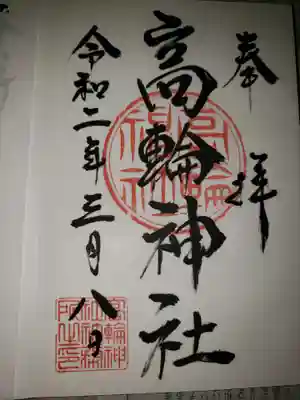 奉拝
高輪神社
令和二年三月八日
高輪神社
高輪神社社務所之印